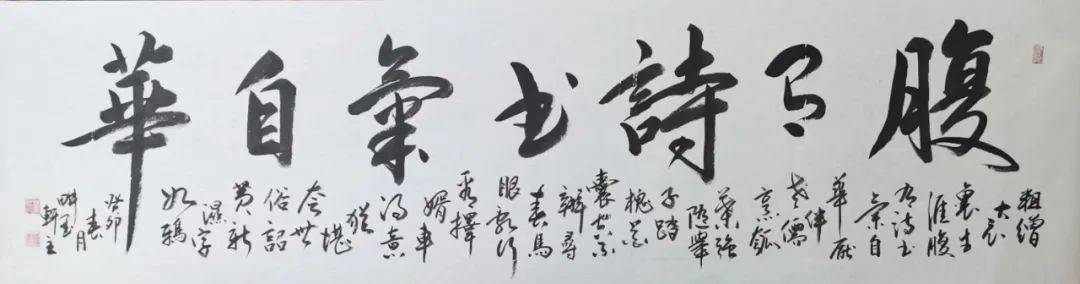 腹有詩書氣自華
粗繒
大布
裹生
涯腹
有詩書
氣自
華厭
伴
老儒
烹瓠
葉強
隨舉
子踏
槐花
囊空不
辦尋
春馬
眼亂行
看擇
婿車
得意
猶
堪
夸世
俗詔
黃新
濕字
如鴉
癸卯
春月
畊玉
軒主